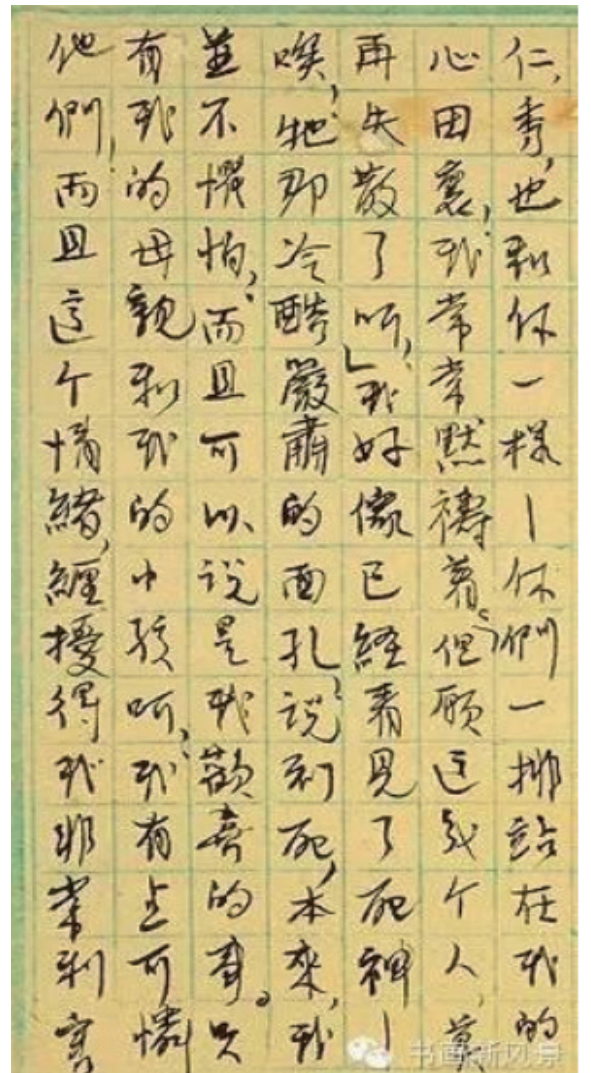 仁,秀,也和你一樣—你們一排站在我的
心田裏,我常常默禱着。但願這幾个人,莫
再失散了呵,」我好像已經看見了死神—
唉,牠那冷酷嚴肅的面孔,说到死,本來,我
並不懼怕,而且可以说是我歡喜的事。只
有我的母親和我的小孩呵,我有点可憐
他們,而且這个情緒,纏擾得我非常利害
书画新风景